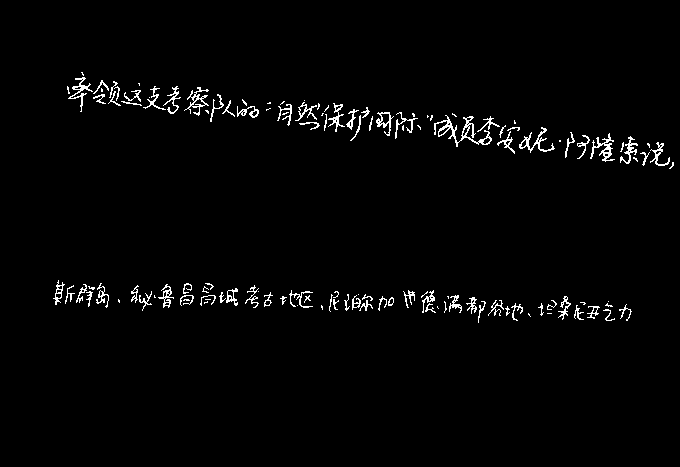 牵领这支考察队的“自然保护国际”成员李安妮·阿隆索说，
斯群岛、秘鲁昌昌城考古地区、尼泊尔加德满都谷地、坦桑尼亚乞力